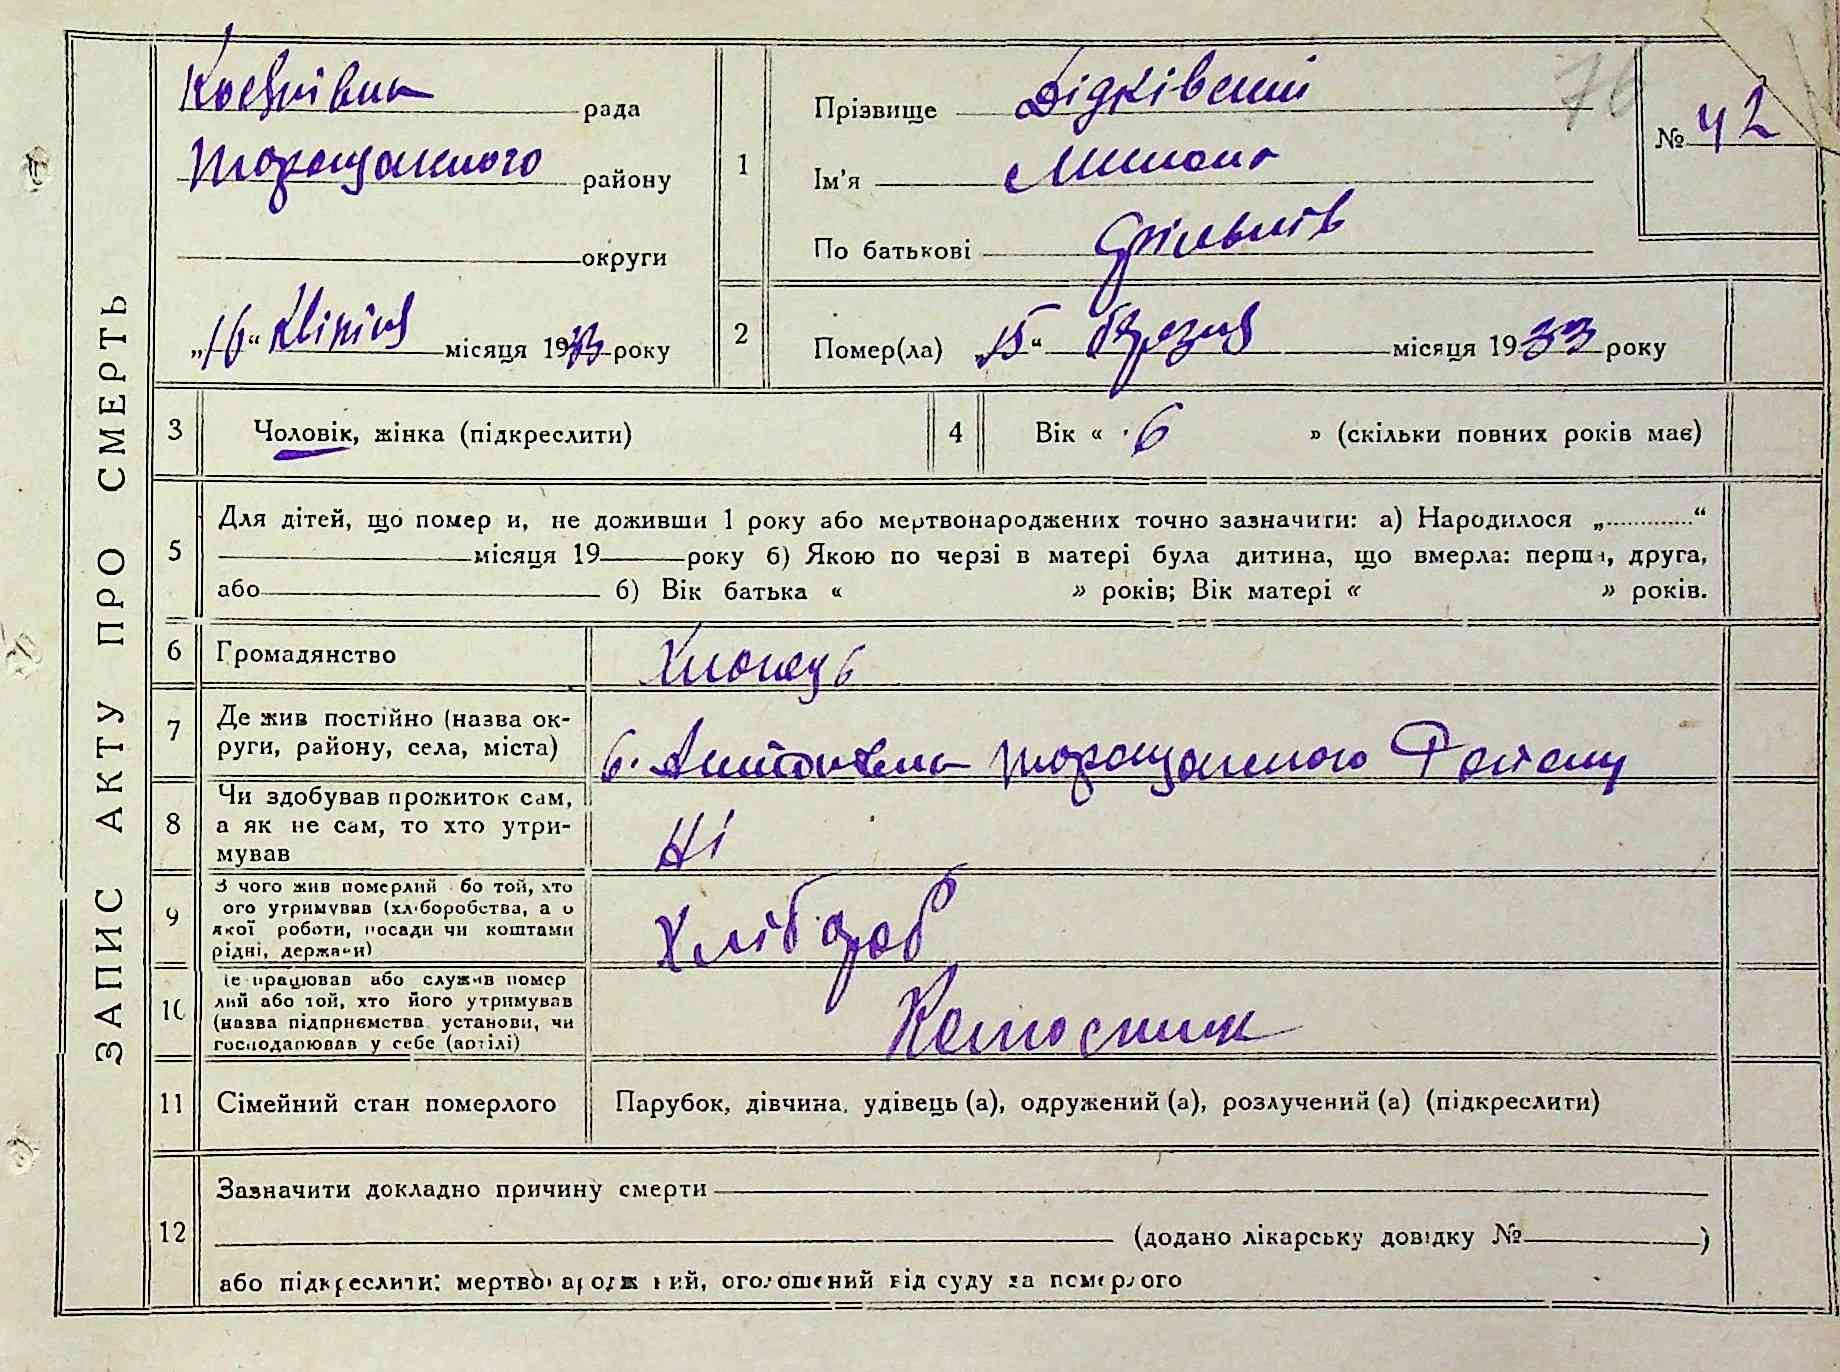 ЗАПИС АКТУ ПРО СМЕРТЬ
рада
Таращанського району
округи
„16“ Квітня місяця 1933 року
1
Прізвище Дідківський
Ім'я
По батькові
№ 42
76
2
Помер(ла) „15“ березня місяця 1933 року
3 Чоловік, жінка (підкреслити)
4 Вік « 6 » (скільки повних років має)
5 Для дітей, що помер и, не доживши 1 року або мертвонароджених точно зазначити: а) Народилося „............“
місяця 19 року б) Якою по черзі в матері була дитина, що вмерла: перша, друга,
або б) Вік батька « » років; Вік матері « » років.
6 Громадянство Хлопець
7 Де жив постійно (назва ок-
руги, району, села, міста) с. Антонівка Таращанського Району
8 Чи здобував прожиток сам,
а як не сам, то хто утри-
мував Ні
9 З чого жив померлий бо той, хто
ого утримував (хліборобства, а о
якої роботи, посади чи коштами
рідні, держави) Хлібороб
10 е працював або служив помер
лий або той, хто його утримував
(назва підприємства установи, чи
господарював у себе (артілі) Колгоспник
11 Сімейний стан померлого Парубок, дівчина, удівець (а), одружений (а), розлучений (а) (підкреслити)
12 Зазначити докладно причину смерти
(додано лікарську довідку № )
або підкреслити: мертвонароджений, оголошений від суду за померлого